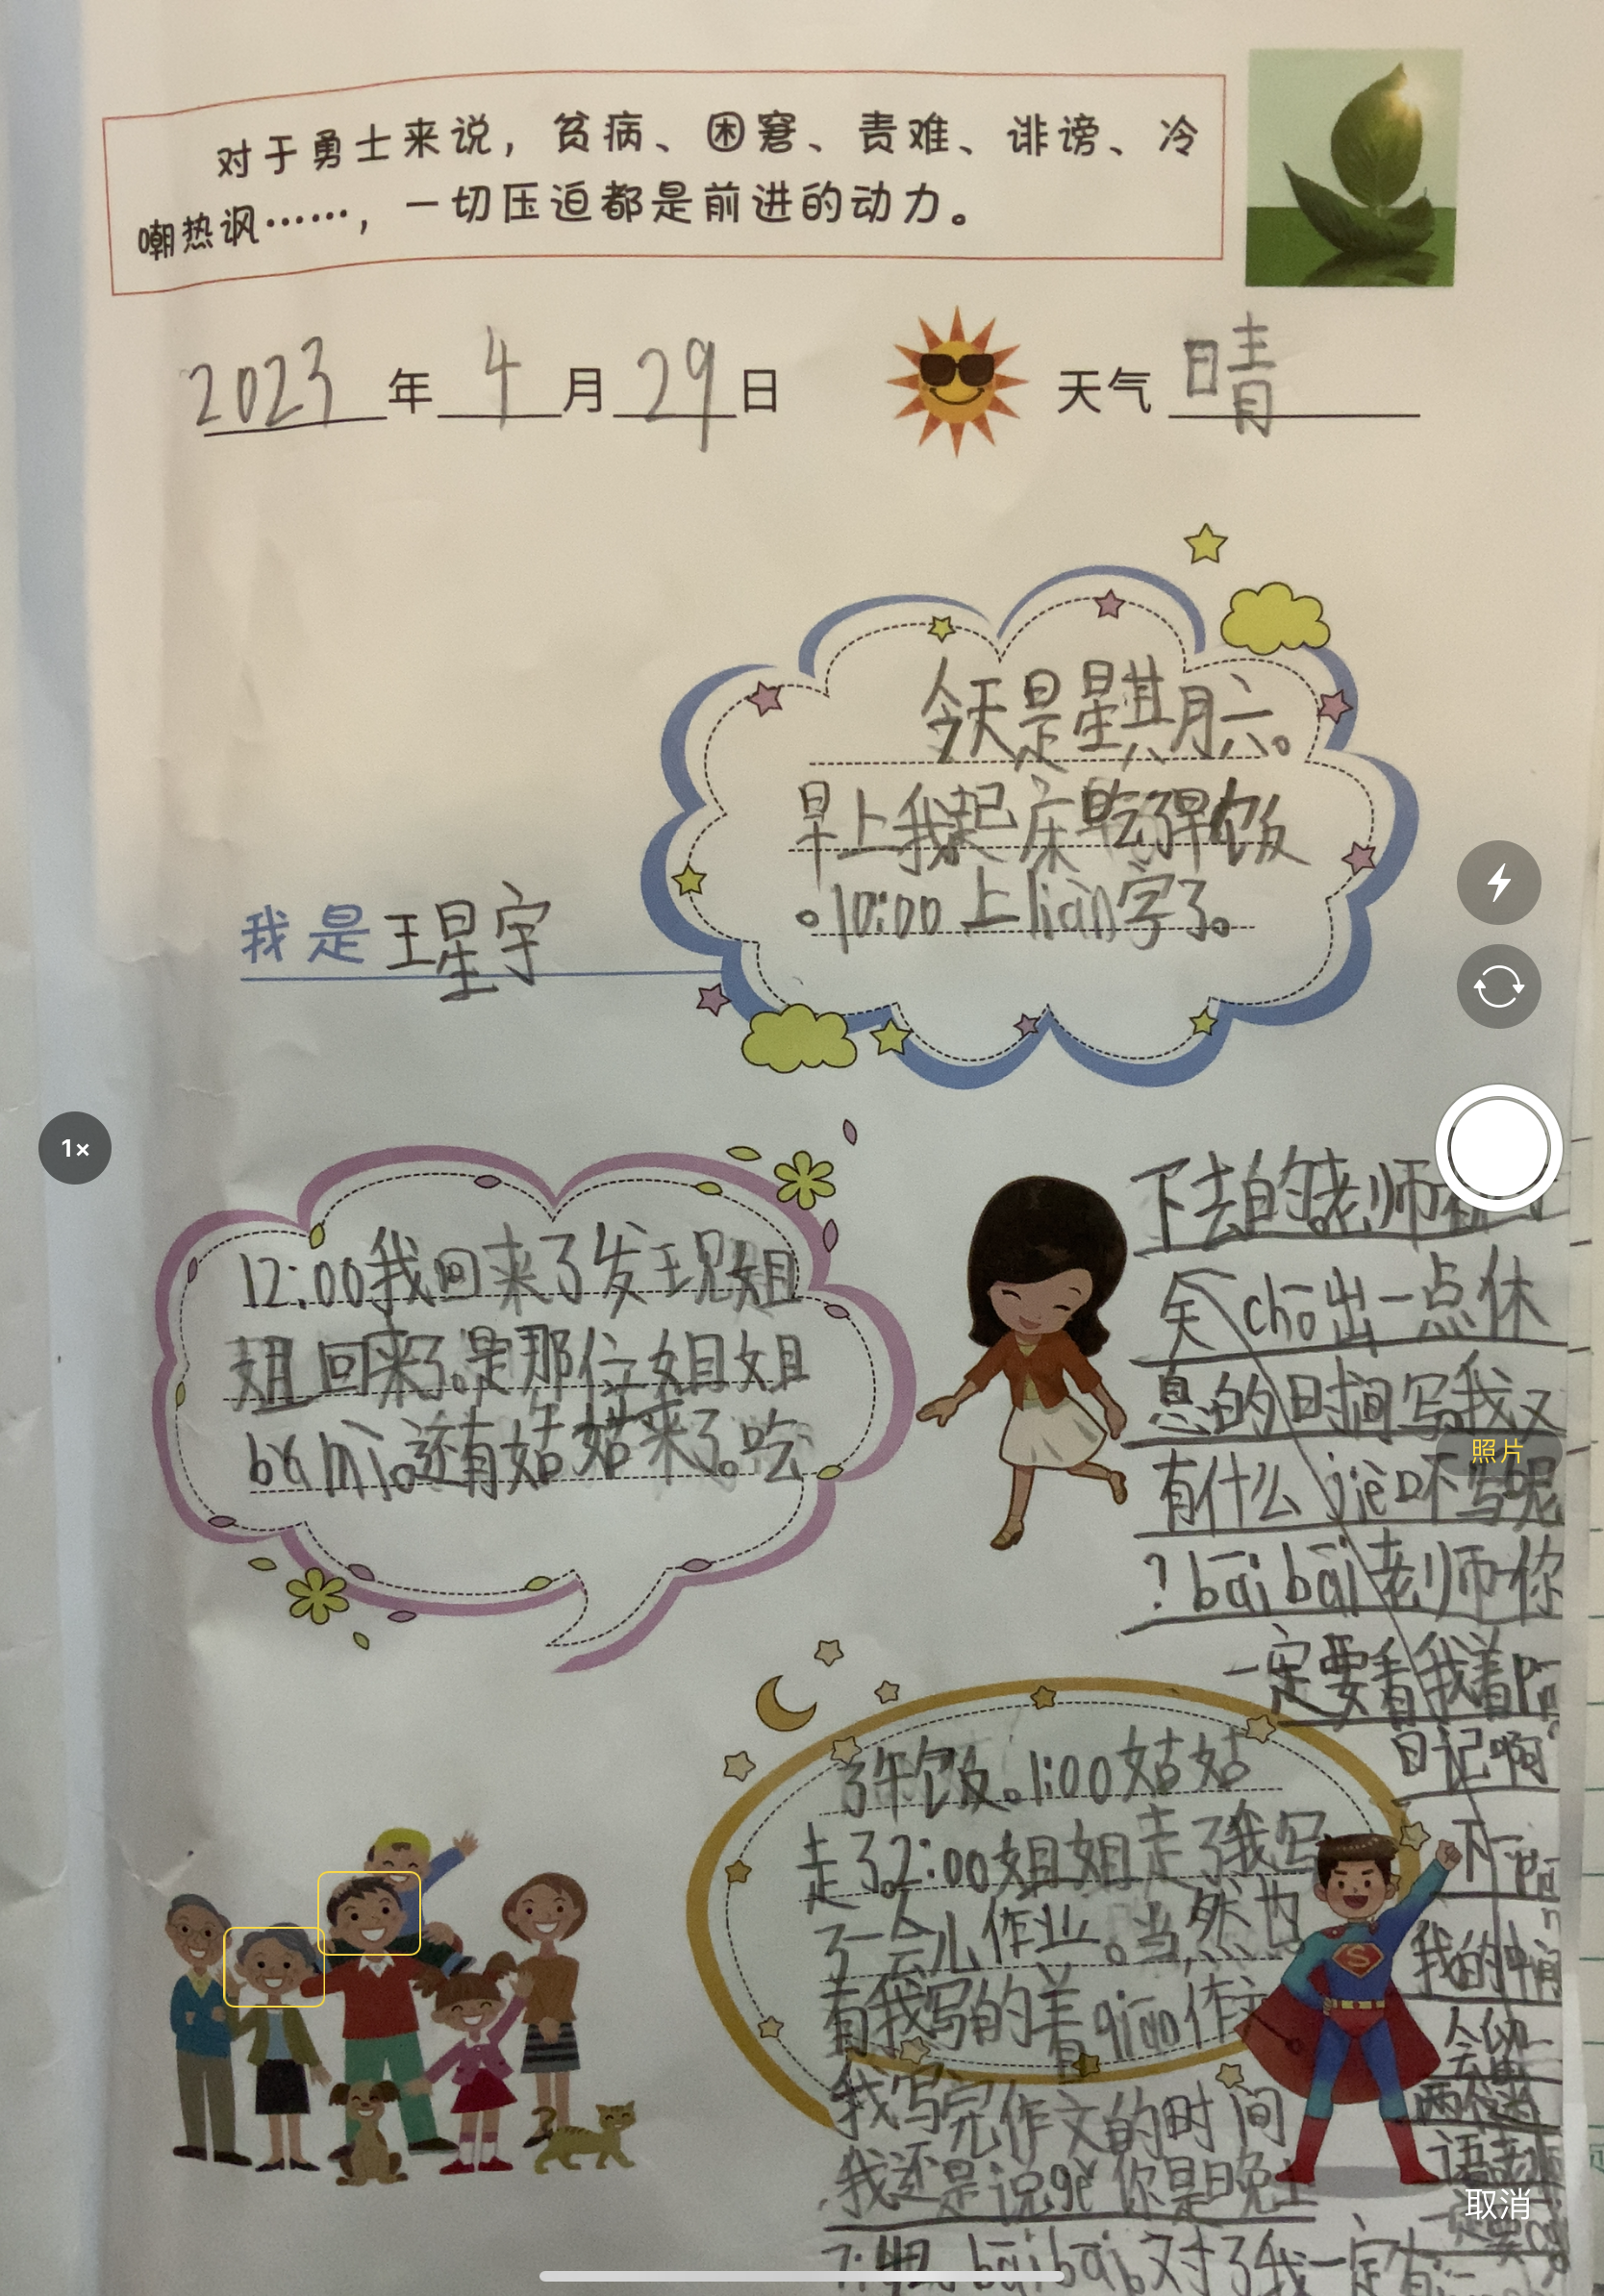 对于勇士来说，贫病、困窘、责难、诽谤、冷
嘲热讽……，一切压迫都是前进的动力。
2023年4月29日 天气晴
今天是星其月六。
早上我起床吃了早饭
。10:00上liàn字了。
我是王星宇
12:00我回来了发王见姐
姐回来了。是那位姐姐
bɑ mì。还有姑姑来了。吃
了午饭。1:00姑姑
走了。2:00姐姐走了我写
了一会儿作业。当然也
有我写的着 作文
我写完作文的时间
我还是说gè你是晚上
bāi bāi 对了我一定有
下去的。老师
chō出一点休
息的时间写。我又
有什么 不写呢
？bāi bāi老师你
一定要看我着
日记啊
下一
我的中间
会
语老师
一定要
1×
照片
取消